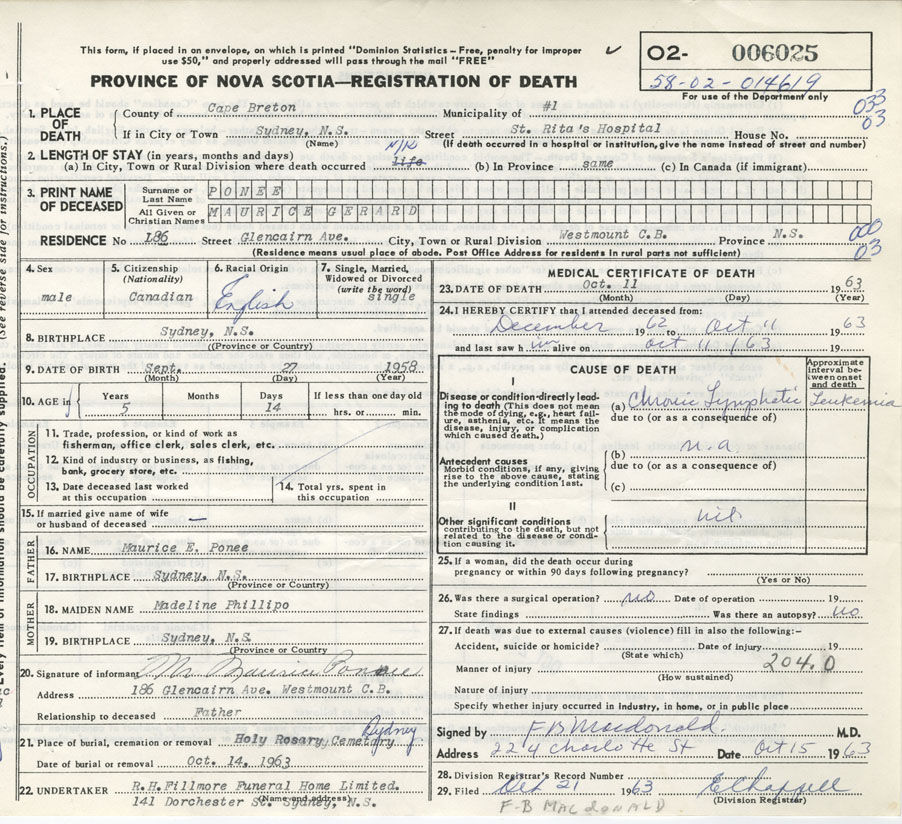 This form, if placed in an envelope, on which is printed "Dominion Statistics – Free, penalty for improper
use $50," and properly addressed will pass through the mail "FREE"
02- 006025
58-02-014619
For use of the Department only
PROVINCE OF NOVA SCOTIA—REGISTRATION OF DEATH
033
03
1. PLACE OF DEATH County of Cape Breton Municipality of #1
If in City or Town Sydney, N.S. Street St. Rita's Hospital House No.
(Name) (If death occurred in a hospital or institution, give the name instead of street and number)
2. LENGTH OF STAY (in years, months and days) N/R
(a) In City, Town or Rural Division where death occurred life (b) In Province same (c) In Canada (if immigrant)
3. PRINT NAME OF DECEASED Surname or Last Name PONEE
All Given or Christian Names MAURICE GERARD
RESIDENCE No 186 Street Glencairn Ave. City, Town or Rural Division Westmount C.B. Province N.S.
000
03
(Residence means usual place of abode. Post Office Address for residents in rural parts not sufficient)
4. Sex male
5. Citizenship (Nationality) Canadian
6. Racial Origin English
7. Single, Married, Widowed or Divorced (write the word) single
8. BIRTHPLACE Sydney, N.S.
(Province or Country)
9. DATE OF BIRTH Sept. 27 1958
(Month) (Day) (Year)
10. AGE in Years Months Days If less than one day old
5 14 hrs. or min.
OCCUPATION
11. Trade, profession, or kind of work as
fisherman, office clerk, sales clerk, etc.
12. Kind of industry or business, as fishing,
bank, grocery store, etc.
13. Date deceased last worked at this occupation
14. Total yrs. spent in this occupation
15. If married give name of wife
or husband of deceased —
FATHER
16. NAME Maurice E. Ponee
17. BIRTHPLACE Sydney, N.S.
(Province or Country)
MOTHER
18. MAIDEN NAME Madeline Phillipo
19. BIRTHPLACE Sydney, N.S.
(Province or Country)
20. Signature of informant Mr Maurice Ponee
Address 186 Glencairn Ave. Westmount C.B.
Relationship to deceased Father
21. Place of burial, cremation or removal Holy Rosary Cemetary Sydney
Date of burial or removal Oct. 14, 1963
22. UNDERTAKER R.H. Fillmore Funeral Home Limited.
141 Dorchester St. Sydney, N.S.
(Name and address)
MEDICAL CERTIFICATE OF DEATH
23. DATE OF DEATH Oct. 11 1963
(Month) (Day) (Year)
24. I HEREBY CERTIFY that I attended deceased from:
December 1962 to Oct 11 1963
and last saw him alive on Oct 11 / 63 19
CAUSE OF DEATH
Approximate interval between onset and death
I
Disease or condition directly leading to death (This does not mean the mode of dying, e.g., heart failure, asthenia, etc. It means the disease, injury, or complication which caused death.)
(a) Chronic Lymphatic Leukemia
due to (or as a consequence of)
Antecedent causes
Morbid conditions, if any, giving rise to the above cause, stating the underlying condition last.
(b) n.a.
due to (or as a consequence of)
(c)
II
Other significant conditions
contributing to the death, but not related to the disease or condition causing it.
nil
25. If a woman, did the death occur during
pregnancy or within 90 days following pregnancy?
(Yes or No)
26. Was there a surgical operation? no Date of operation 19
State findings Was there an autopsy? no
27. If death was due to external causes (violence) fill in also the following:–
Accident, suicide or homicide? Date of injury 19
(State which)
Manner of injury 204.0
(How sustained)
Nature of injury
Specify whether injury occurred in industry, in home, or in public place
Signed by F B Macdonald. M.D.
Address 224 Charlotte St Date Oct 15 1963
28. Division Registrar's Record Number
29. Filed Oct 21 1963 E Chappell
(Division Registrar)
F-B MACDONALD
(See reverse side for instructions.)